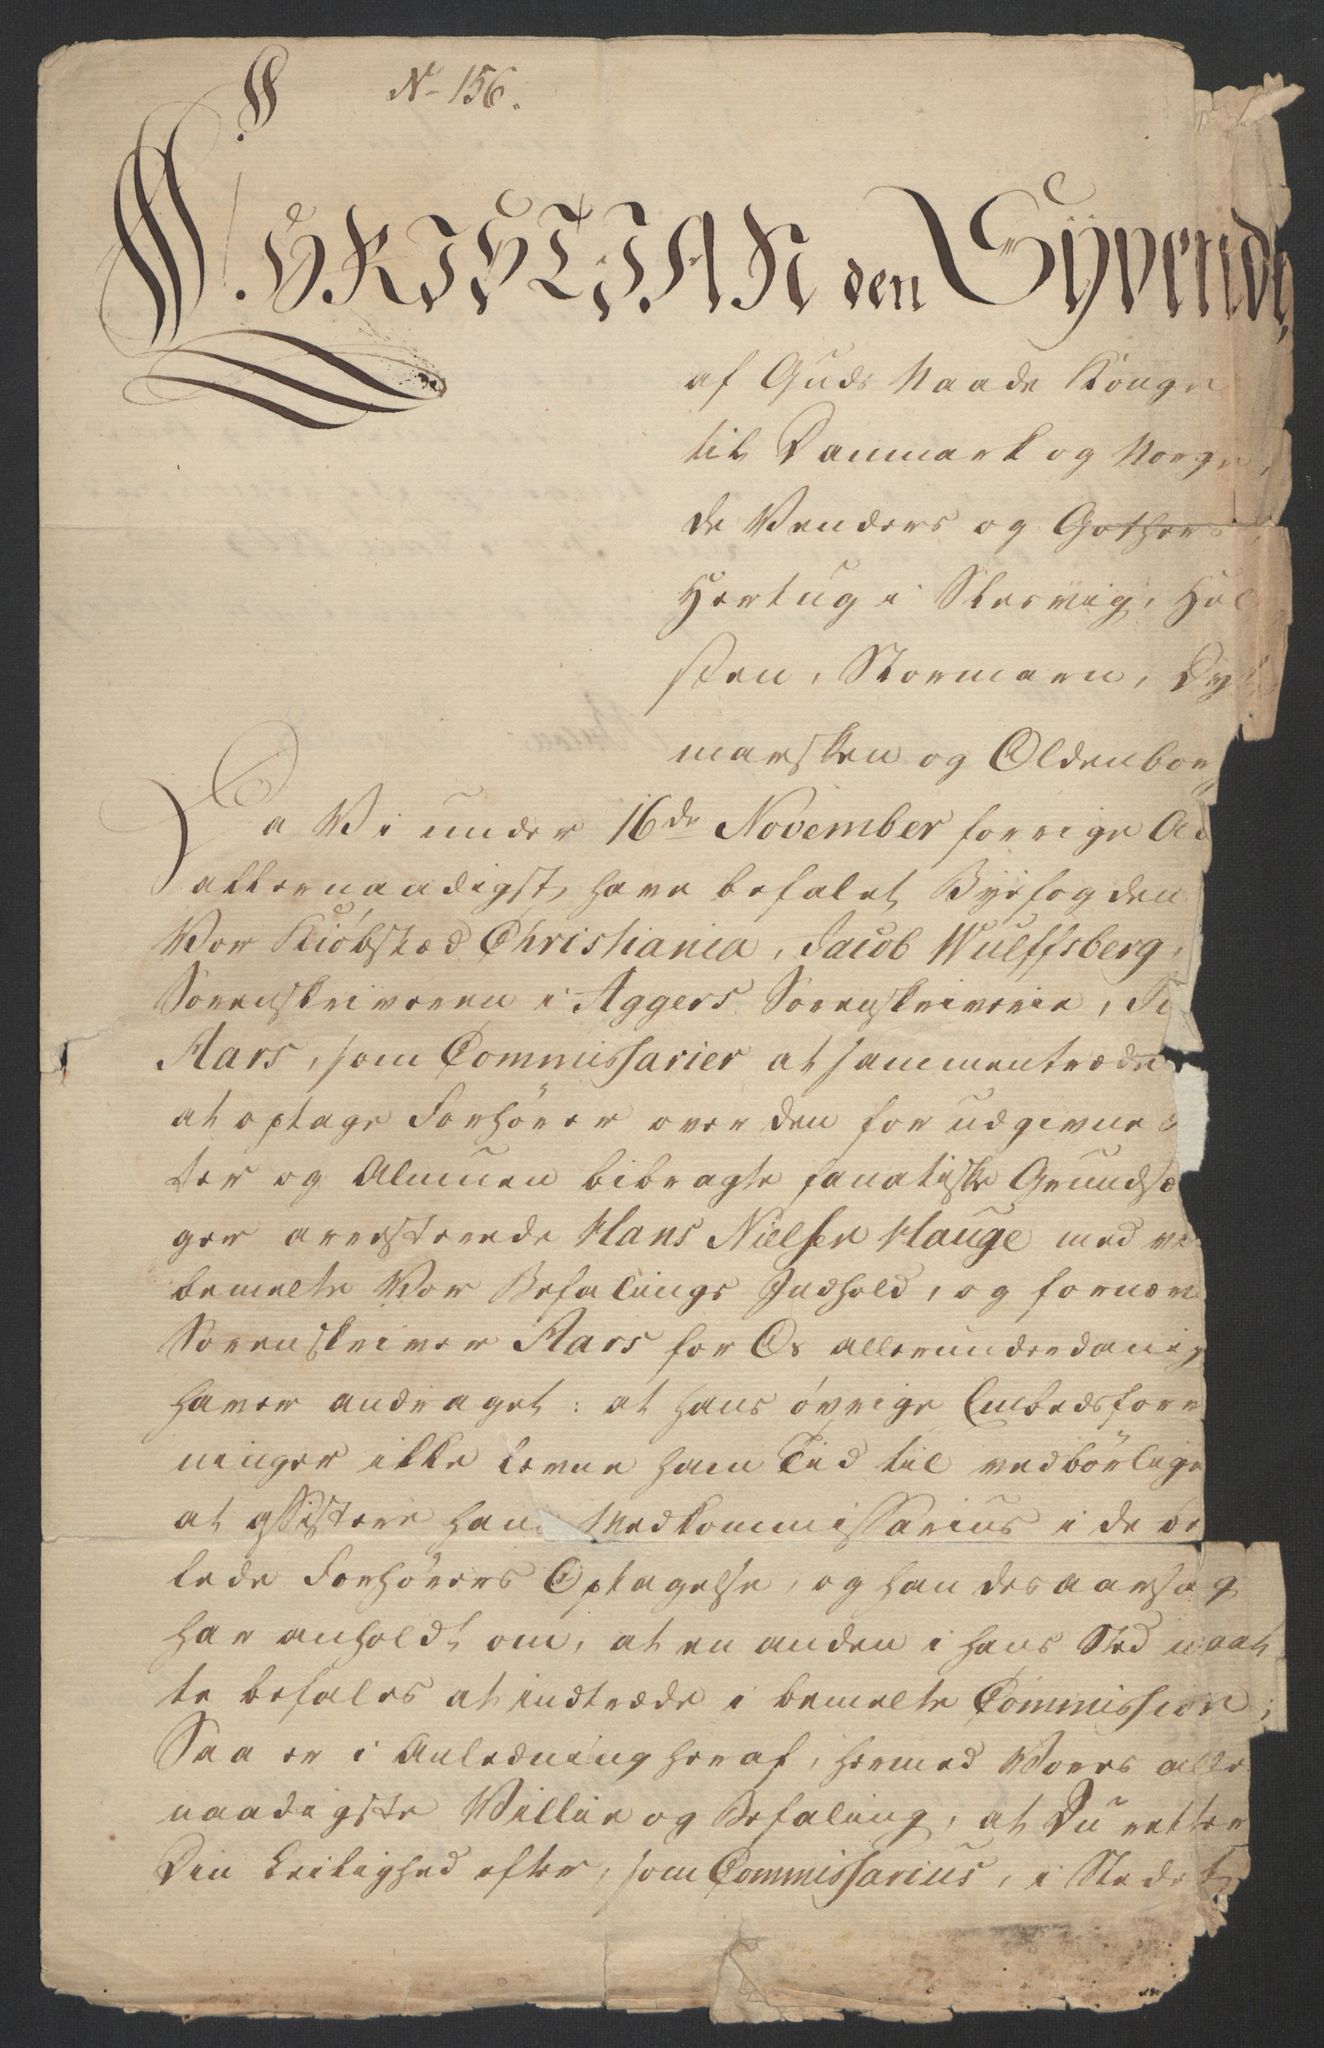 N- 156.
CHRISTIAN den Syvende,
af Guds Naade Konge
til Danmark og Norge,
de Venders og Gothers
Hertug i Slesvig, Hol
sten, Stormarn, Dyt
marsken og Oldenborg
Da Vi under 16de November forrige
allernaadigst have befalet Byefogden
Vor Kiöbstæd Christiania, Jacob Wulffsberg,
Sorenskriveren i Aggers Sorenskriverie,
Aars, som Commissarier at sammentræde
at optage Forhörer over den for udgivne
ter og Almuen bibragte fanatiske Grundsæ
ger aresterede Hans Nielsen Hauge med
bemelte Vor Befalings Indhold, og fornæv
Sorenskriver Aars for Os allerunderdanig
haver andraget: at hans övrige Embedsforr
ninger ikke levne ham Tid til vedbörlige
at assistere hans Medkommissarius i de
lede Forhörers Optagelse, og han desaarsag
har anholdt om, at en anden i hans Sted maat
te befales at indtræde i bemelte Commission;
Saa er i Anledning heraf, hermed Vores aller
naadigste Villie og Befaling, at Du retter
Din Leilighed efter, som Commissarius, i Stedet